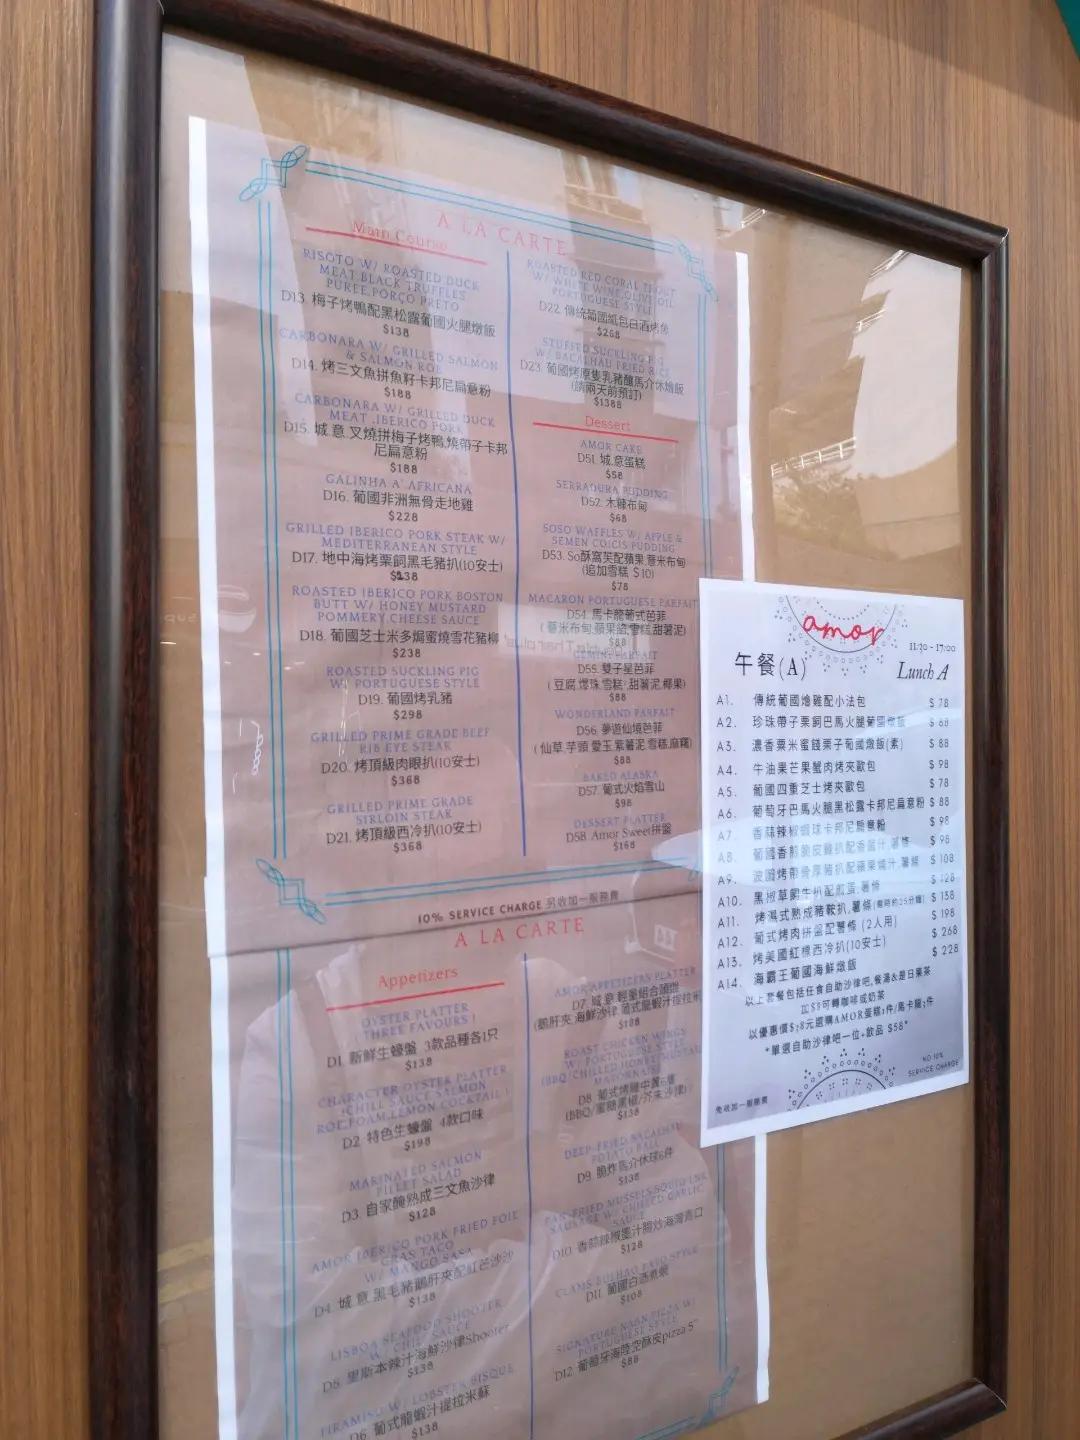 A LA CARTE
Main Course
RISOTO W/ ROASTED DUCK
MEAT,BLACK TRUFFLES
PUREE,PORCO PRETO
D13. 梅子烤鴨配黑松露葡國火腿燉飯
$138
CARBONARA W/ GRILLED SALMON
& SALMON ROE
D14. 烤三文魚拼魚籽卡邦尼扁意粉
$188
CARBONARA W/ GRILLED DUCK
MEAT ,IBERICO PORK
D15. 城.意.叉燒拼梅子烤鴨,燒帶子卡邦
尼扁意粉
$188
GALINHA A' AFRICANA
D16. 葡國非洲無骨走地雞
$228
GRILLED IBERICO PORK STEAK W/
MEDITERRANEAN STYLE
D17. 地中海烤栗飼黑毛豬扒(10安士)
ROASTED IBERICO PORK BOSTON
BUTT W/ HONEY MUSTARD
POMMERY,CHEESE SAUCE
D18. 葡國芝士米多焗蜜燒雪花豬柳
$238
ROASTED SUCKLING PIG
W/ PORTUGUESE STYLE
D19. 葡國烤乳豬
$298
GRILLED PRIME GRADE BEEF
RIB EYE STEAK
D20. 烤頂級肉眼扒(10安士)
$368
GRILLED PRIME GRADE
SIRLOIN STEAK
D21. 烤頂級西冷扒(10安士)
$368
ROASTED RED CORAL TROUT
W/ WHITE WINE,OLIVE OIL
PORTUGUESE STYLE
D22. 傳統葡國紙包白酒烤魚
$268
STUFFED SUCKLING PIG
W/ BACALHAU FRIED RICE
D23. 葡國烤原隻乳豬釀馬介休燴飯
(請兩天前預訂)
$1388
Dessert
AMOR CAKE
D51. 城.意蛋糕
$58
SERRADURA PUDDING
D52. 木糠布甸
$68
SOSO WAFFLES W/ APPLE &
SEMEN COICIS PUDDING
D53. So酥窩芙配蘋果,薏米布甸
(追加雪糕 $10)
$78
MACARON PORTUGUESE PARFAIT
D54. 馬卡龍葡式芭菲
(薏米布甸,蘋果餡,雪糕,甜薯泥)
$88
GEMINI PARFAIT
D55. 雙子星芭菲
(豆腐,爆珠,雪糕,甜薯泥,椰果)
$88
WONDERLAND PARFAIT
D56. 夢遊仙境芭菲
(仙草,芋頭,愛玉,紫薯泥,雪糕,麻糬)
$88
BAKED ALASKA
D57. 葡式火焰雪山
$98
DESSERT PLATTER
D58. Amor Sweet拼盤
$168
10% SERVICE CHARGE 另收加一服務費
A LA CARTE
Appetizers
OYSTER PLATTER
(THREE FAVOURS)
D1. 新鮮生蠔盤 3款品種各1只
$138
CHARACTER OYSTER PLATTER
(CHILL SAUCE SALMON
ROE,FOAM,LEMON COCKTAIL)
D2. 特色生蠔盤 4款口味
$198
MARINATED SALMON
FILLET SALAD
D3. 自家醃熟成三文魚沙律
$128
AMOR IBERICO PORK FRIED FOIE
GRAS TACO
W/ MANGO SASA
D4. 城.意.黑毛豬鵝肝夾配紅芒沙沙
$138
LISBOA SEAFOOD SHOOTER
W/ CHILI SAUCE
里斯本辣汁海鮮沙律Shooter
$138
TIRAMISU W/ LOBSTER BISQUE
D6. 葡式龍蝦汁提拉米蘇
$138
AMOR APPETIZERS PLATTER
D7. 城.意.輕量組合頭盤
(鵝肝夾,海鮮沙律,葡式龍蝦汁提拉米
$188
ROAST CHICKEN WINGS
W/ PORTUGUESE STYLE
(BBQ/CHILLED HONEY/MUSTARD
MAYONNAIS)
D8. 葡式烤雞中翼6隻
(BBQ/蜜糖黑椒/芥末沙律)
$138
DEEP-FRIED BACALHAU
POTATO BALL
D9. 脆炸馬介休球6件
$138
PAN-FRIED MUSSELS,SQUID INK
SAUSAGE W/ CHILLED GARLIC
SAUCE
D10. 香蒜辣椒墨汁腸炒海灣青口
$128
CLAMS BULHAO PATO STYLE
D11. 葡國白酒煮蜆
$108
SIGNATURE NAAN PIZZA W/
PORTUGUESE STYLE
D12. 葡萄牙海陸空酥皮pizza 5"
$88
amor
11:30 - 17:00
午餐(A)
Lunch A
A1. 傳統葡國燴雞配小法包 $ 78
A2. 珍珠帶子栗飼巴馬火腿葡國燉飯 $ 88
A3. 濃香粟米蜜餞栗子葡國燉飯(素) $ 88
A4. 牛油果芒果蟹肉烤夾歐包 $ 98
A5. 葡國四重芝士烤夾歐包 $ 78
A6. 葡萄牙巴馬火腿黑松露卡邦尼扁意粉 $ 88
A7. 香蒜辣椒蝦球卡邦尼扁意粉 $ 98
A8. 葡國香煎脆皮雞扒配香菌汁,薯條 $ 98
A9. 波圖烤帶骨厚豬扒配蘋果燒汁,薯條 $ 108
A10. 黑椒草飼牛扒配煎蛋,薯條 $ 128
A11. 烤濕式熟成豬鞍扒,薯條(需時約25分鐘) $ 138
A12. 葡式烤肉拼盤配薯條 (2人用) $ 198
A13. 烤美國紅標西冷扒(10安士) $ 268
A14. 海霸王葡國海鮮燉飯 $ 228
以上套餐包括任食自助沙律吧,餐湯&是日果茶
加$8可轉咖啡或奶茶
以優惠價$38元選購AMOR蛋糕1件/馬卡龍3件
*單選自助沙律吧一位+飲品 $58*
NO 10%
SERVICE CHARGE
免收加一服務費